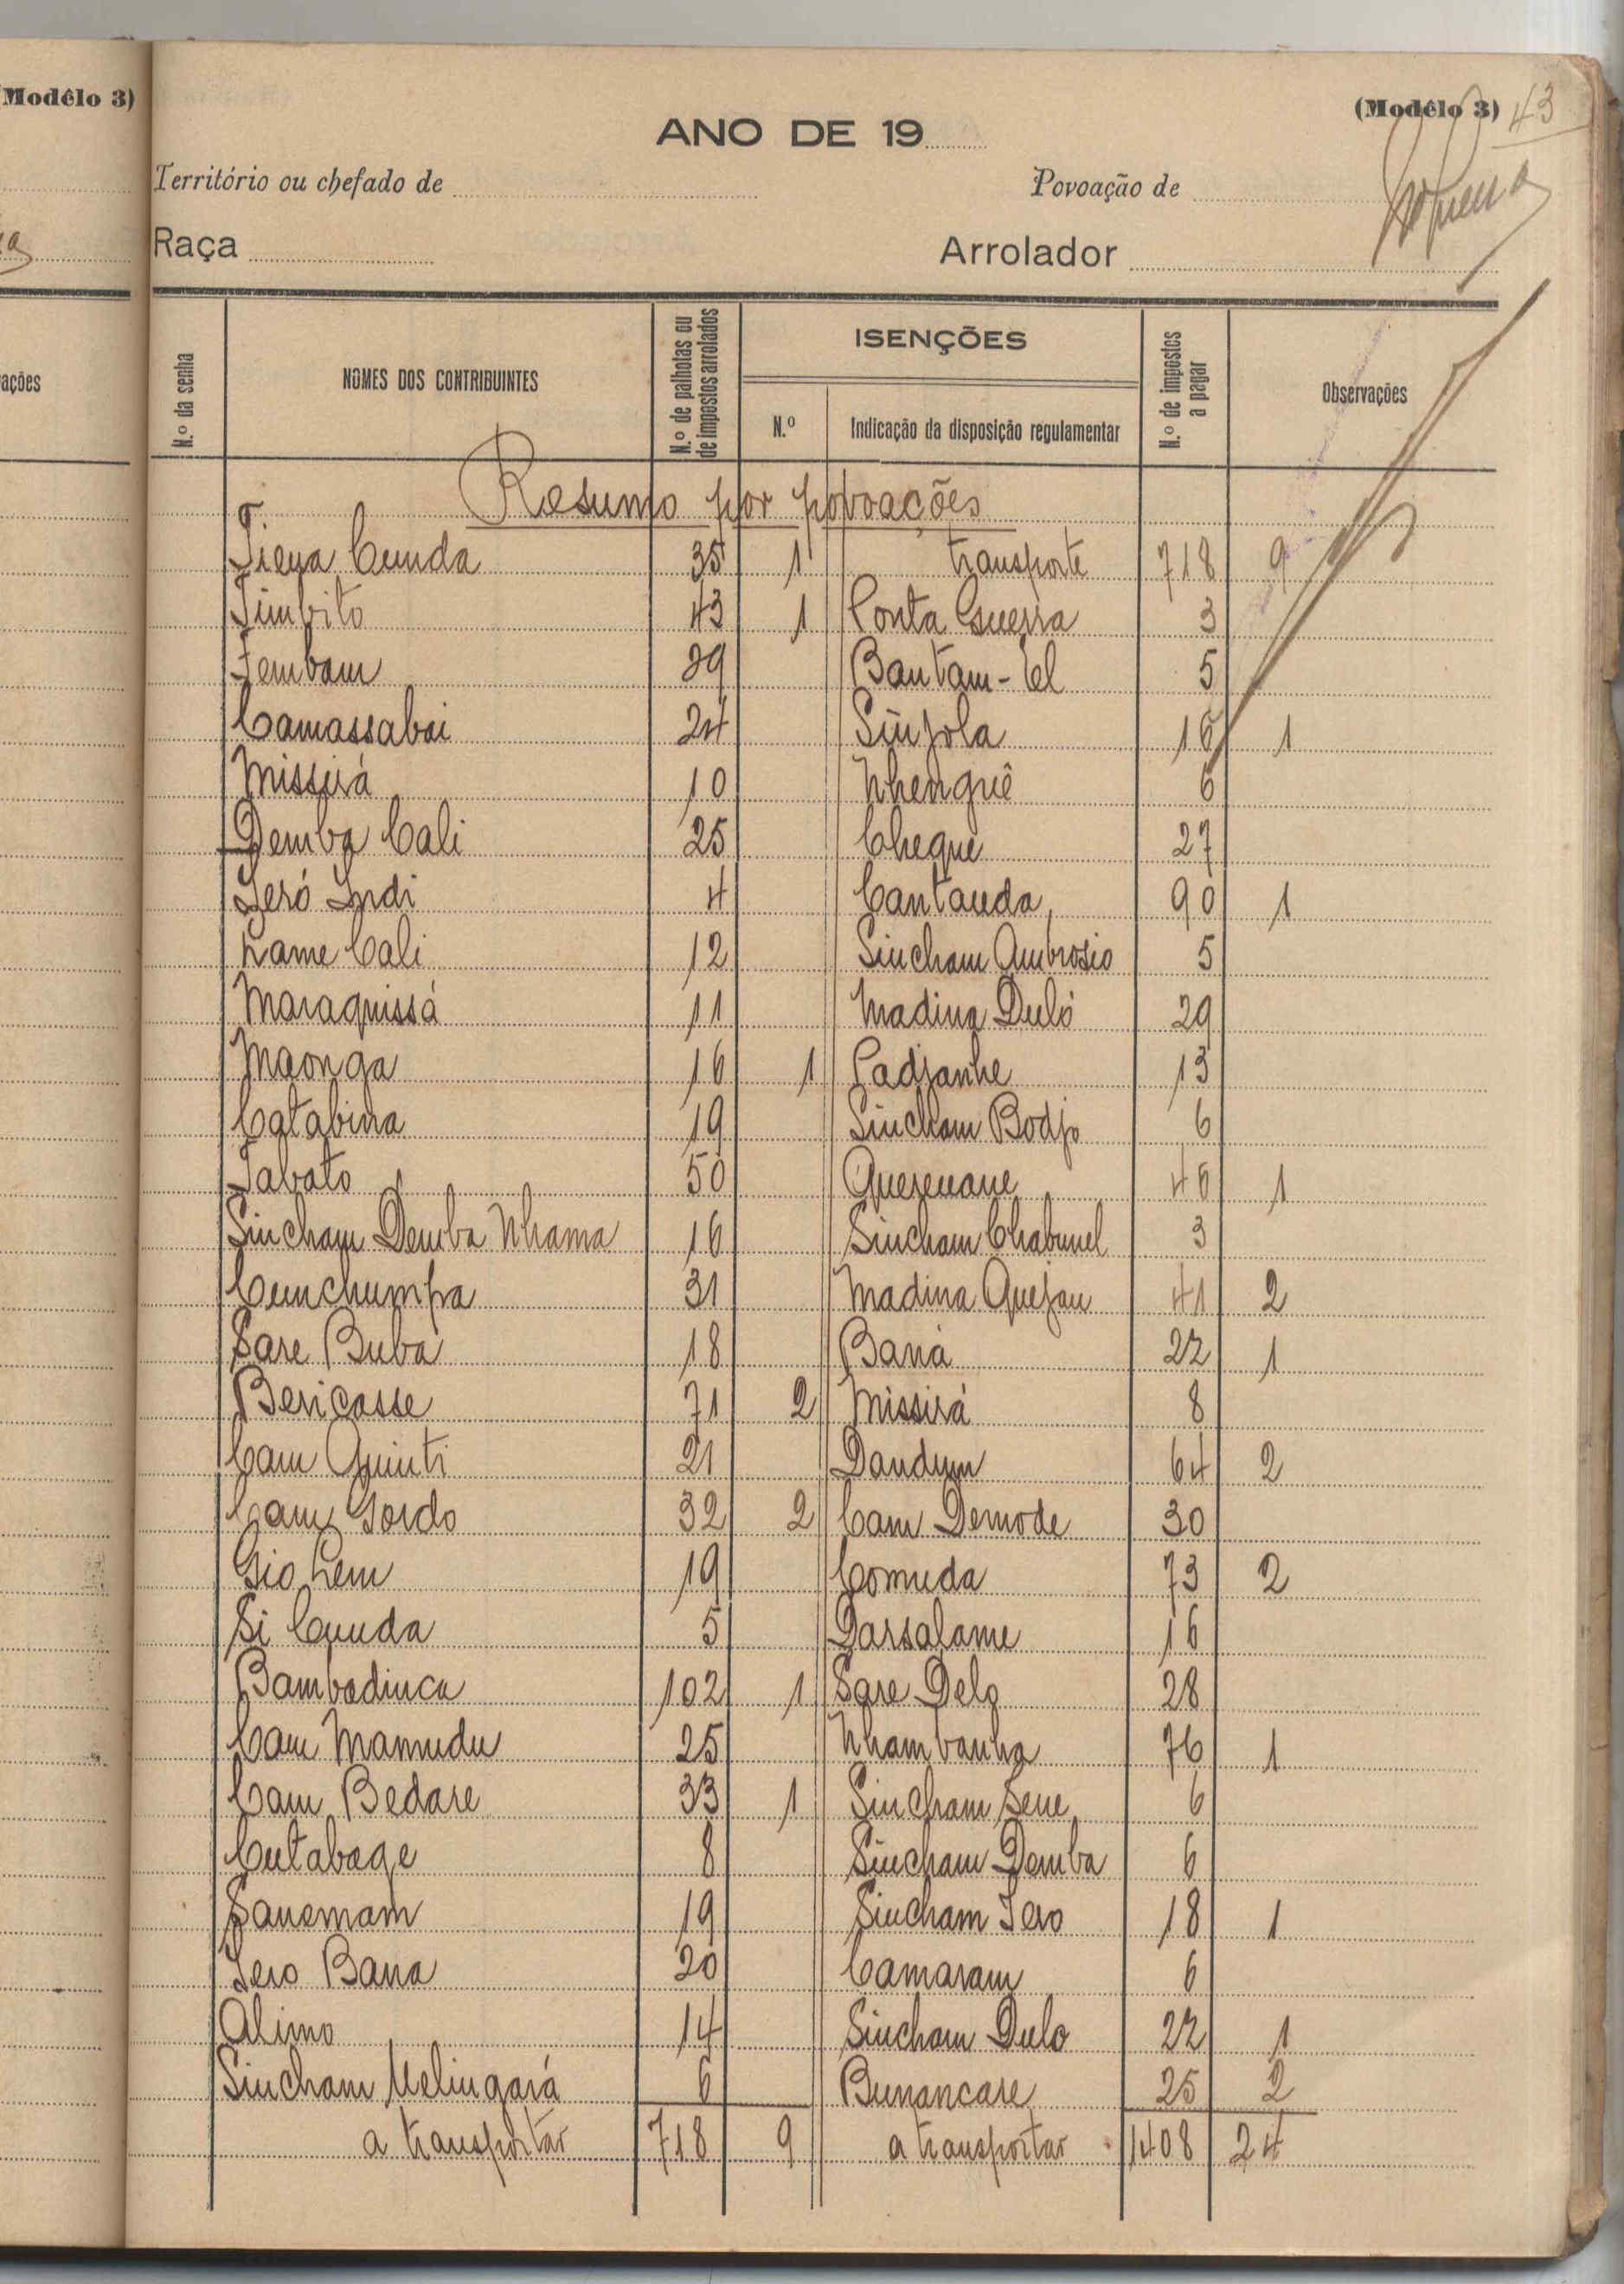 Modêlo 3)
(Modêlo 3) 43
ANO DE 19
Território ou chefado de Povoação de
Raça Arrolador
ações
N.º da senha NOMES DOS CONTRIBUINTES N.º de palhotas ou de impostos arrolados ISENÇÕES N.º Indicação da disposição regulamentar N.º de impostos a pagar Observações
Resumo por povoações
Cunda 35 1 transporte 718 9
Timbito 43 1 Ponta Guerra 3
Fembam 29 Bantam-El 5
Camassabai 24 16 1
Missirá 10 Nhenguê 6
Demba Cali 25 Cheque 27
Jeró Indi 4 Cantauda 90 1
Name Cali 12 Sincham Ambrosio 5
Maraquissá 11 Madina Duló 29
Maonga 16 1 Padjanhe 13
Catabina 19 Sincham Bodjo 6
Tabato 50 Querenane 46 1
Sincham Demba Nhama 16 Sincham Chabunel 3
Cunchumpa 31 Madina Quejau 41 2
Sare Buba 18 Baná 22 1
Bericasse 71 2 Missirá 8
Cam Quinti 21 Dandum 64 2
Cam Gordo 32 2 Cam Demode 30
Gio Lem 19 Comuda 73 2
Si Cunda 5 Darsalame 16
Bambadinca 102 1 Sare Delo 28
Cam Mamudu 25 Nhambanha 76 1
Cam Bedare 33 1 Sincham Sene 6
Cutabage 8 Sincham Demba 6
Sanemam 19 Sincham Jero 18 1
Jero Bana 20 Camaram 6
Alimo 14 Sincham Dulo 22 1
Sincham Melingará 6 Bunancare 25 2
a transportar 718 9 a transportar 1408 24